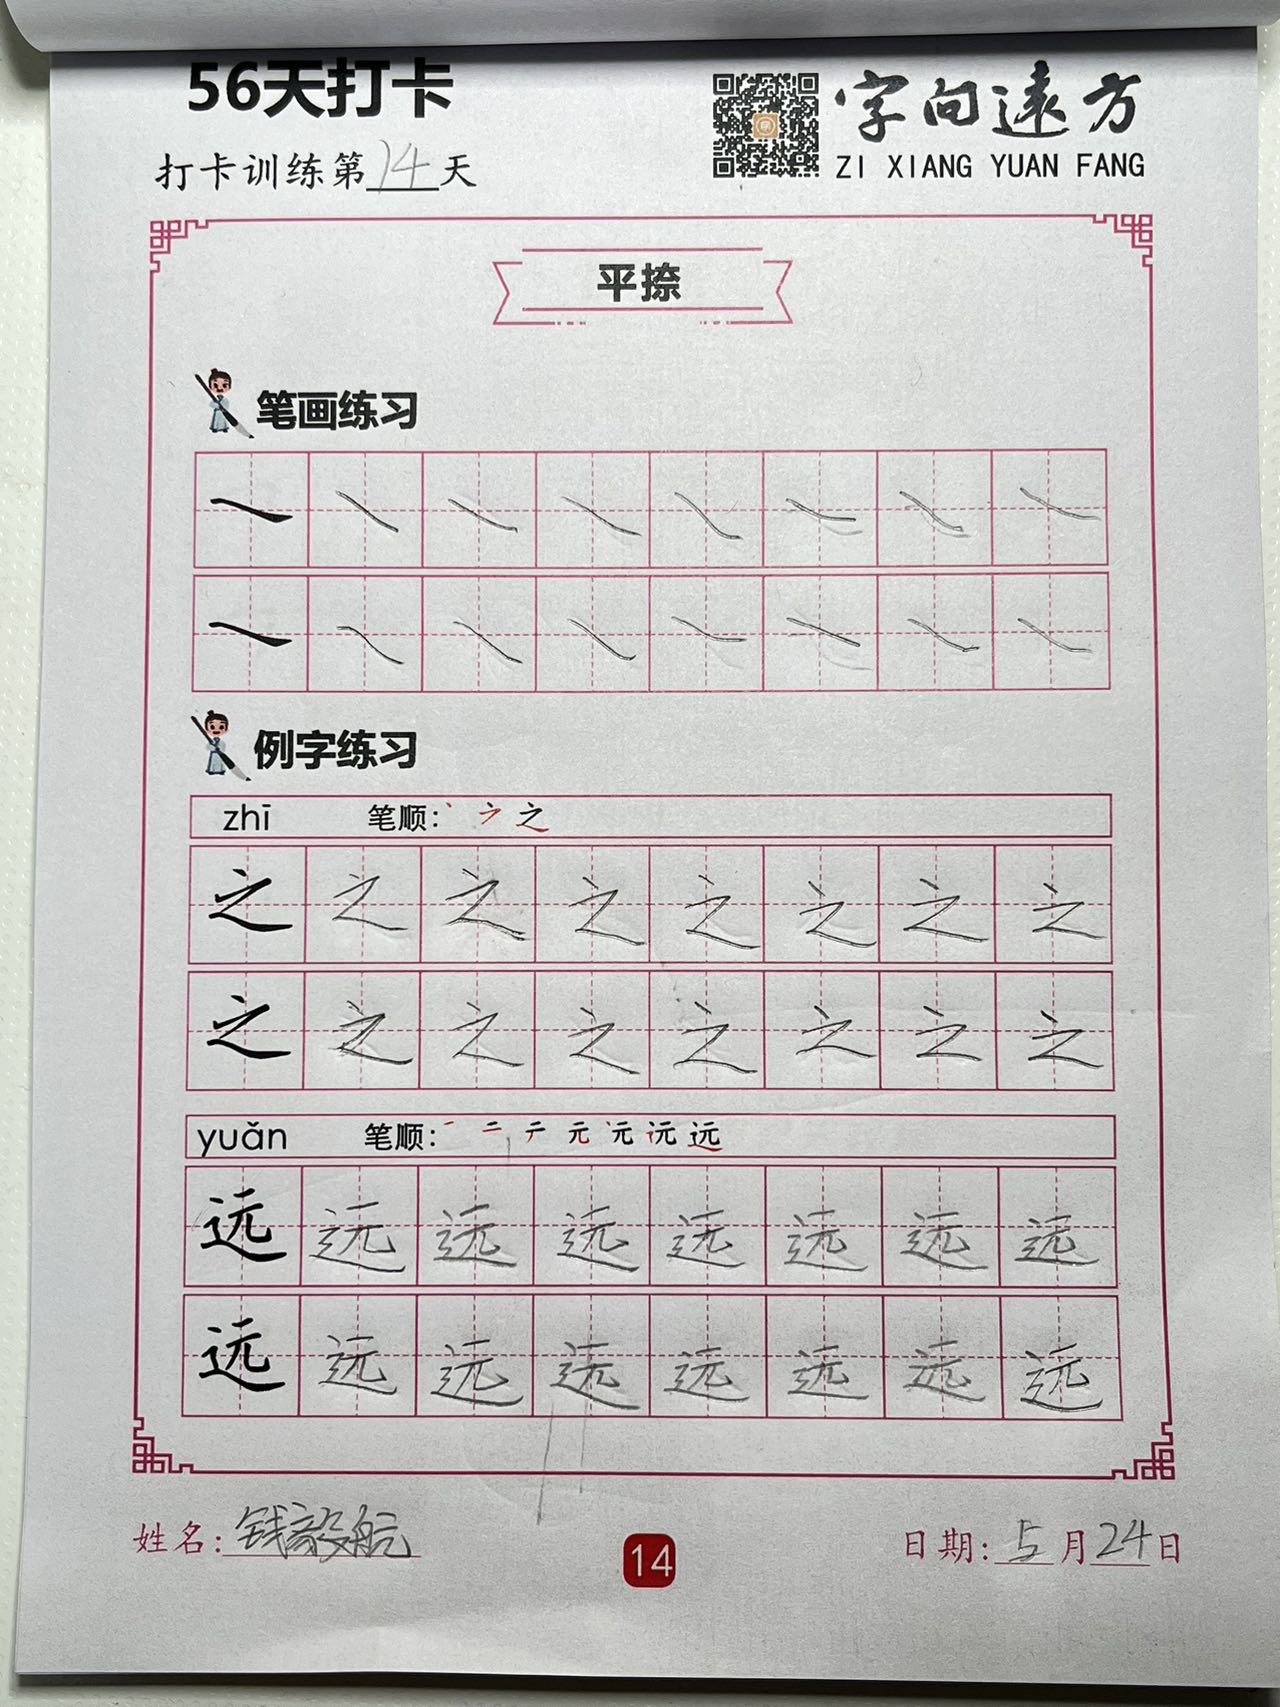 56天打卡
字向遠方
打卡训练第14天
ZI XIANG YUAN FANG
平捺
笔画练习
㇏ ㇏ ㇏ ㇏ ㇏ ㇏ ㇏ ㇏
㇏ ㇏ ㇏ ㇏ ㇏ ㇏ ㇏ ㇏
例字练习
zhī 笔顺: 之
之 之 之 之 之 之 之 之
之 之 之 之 之 之 之 之
yuǎn 笔顺: 一 二 テ 元 远
远 远 远 远 远 远 远 远
远 远 远 远 远 远 远 远
姓名: 钱毅航
14
日期: 5月24日